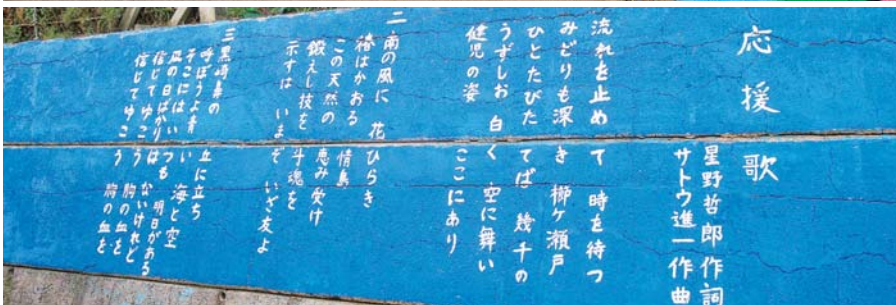 応援歌
星野哲郎作詞
サトウ進一作曲
流れを止めて 時を待つ
みどりも深き 櫛ヶ瀬戸
ひとたびたてば 幾千の
うずしお 白く 空に舞い
健児の姿 ここにあり
二 南の風に 花ひらき
椿はかおる 情島
この天然の 恵み受け
鍛えし技を 斗魂を
示すは いまぞ いざ友よ
三 黒崎鼻の 丘に立ち
呼ぼうよ青い 海と空
そこには いつも 明日がある
凪の日ばかりは ないけれど
信じてゆこう 胸の血を
信じてゆこう 胸の血を